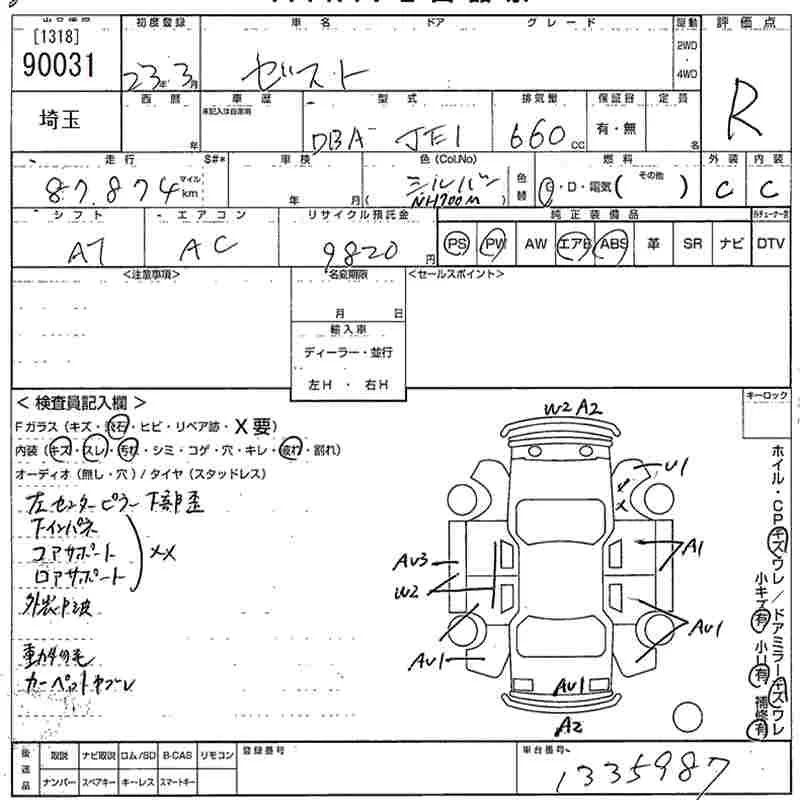 出品番号
[1318]
90031
初度登録
23年3月
車名
ドア
グレード
ゼスト
駆動
2WD
・
4WD
評価点
R
埼玉
西暦
年
車歴
未記入は自家用
型式
DBA- JE1
排気量
660 CC
保証書
有・無
定員
名
走行
87,874
マイル
km
S#*
車検
年 月(
色(Col.No)
シルバー
NH700M )
色替
燃料
G・D・電気( その他 )
外装
C
内装
C
シフト
AT
エアコン
AC
リサイクル預託金
9820円
純正装備品
PS PW AW エアB ABS 革 SR ナビ DTV
<注意事項>
名変期限
月 日
輸入車
ディーラー・並行
左H ・ 右H
<セールスポイント>
< 検査員記入欄 >
Fガラス(キズ・飛石・ヒビ・リペア跡・X要)
内装(キズ・スレ・汚れ・シミ・コゲ・穴・キレ・破れ・割れ)
オーディオ(無し・穴)/タイヤ(スタッドレス)
左センターピラー下部歪
下インパネ
コアサポート
ロアサポート
XX
外装中波
動物の毛
カーペットヤブレ
W2 A2
U1
X
A1
AU3
W2
AU1
AU1
AU1
A2
キーロック
ホイル・CPキズワレ/ドアミラーキズワレ
小キズ有 小U有 補修有
後送品
取説 ナビ取説 ロム/SD B-CAS リモコン
ナンバー スペアキー キーレス スマートキー
登録番号
車台番号
1335987